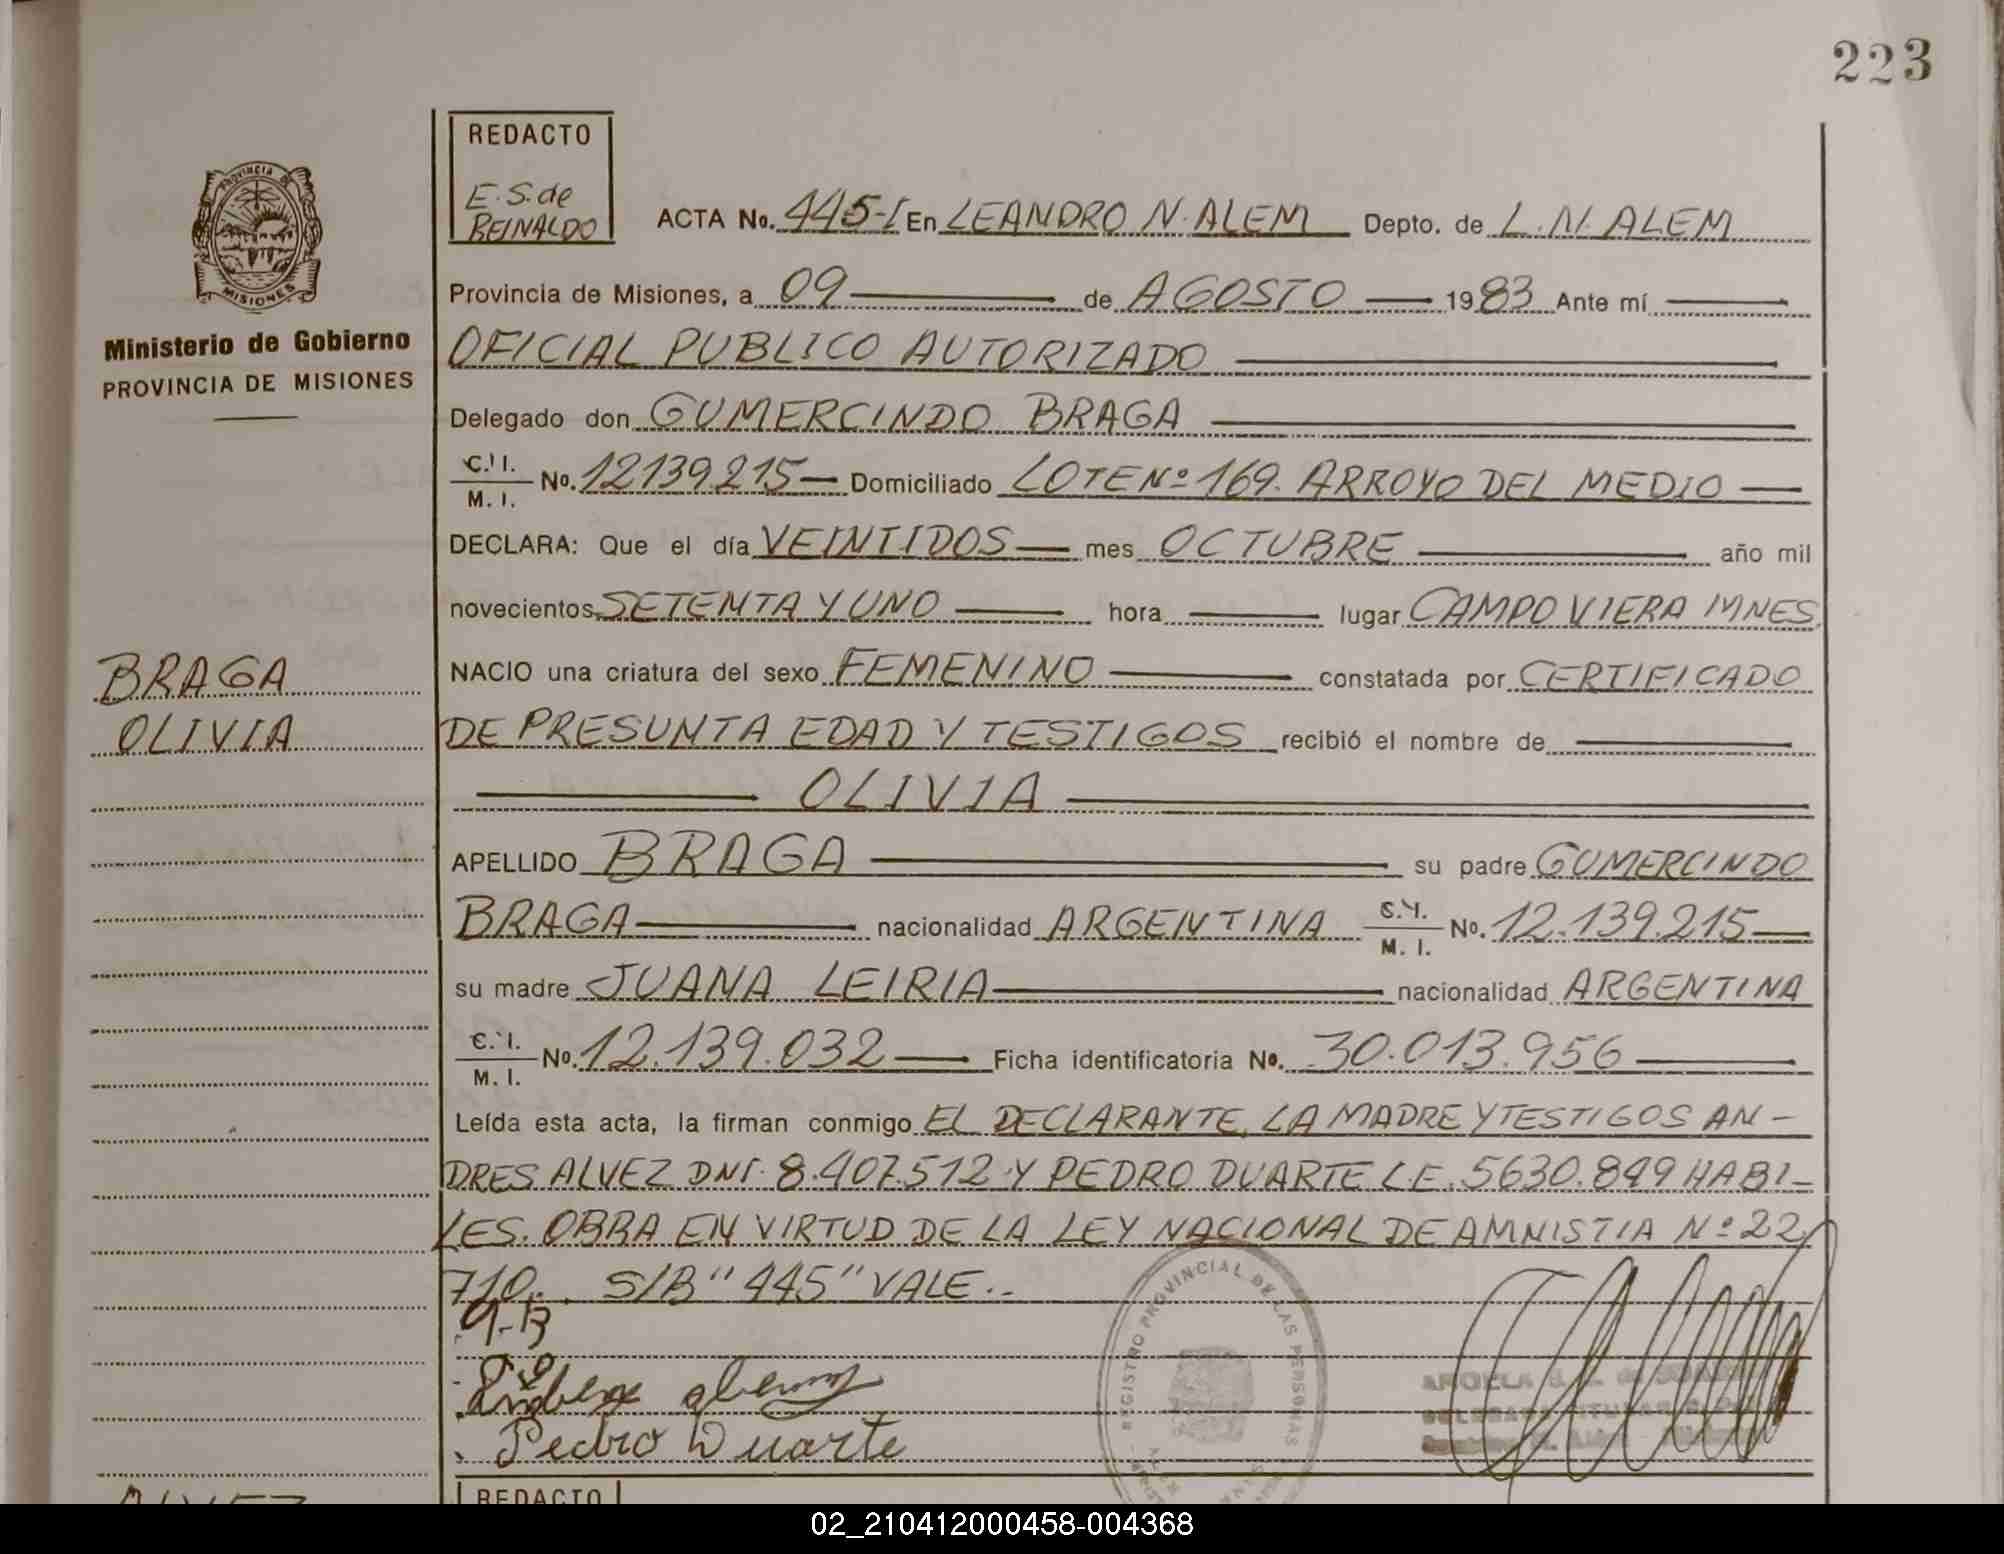 223
REDACTO
E. S. de
REINALDO
PROVINCIA DE
MISIONES
Ministerio de Gobierno
PROVINCIA DE MISIONES
ACTA No. 445-I En LEANDRO N. ALEM Depto. de L. N. ALEM
Provincia de Misiones, a 09 de AGOSTO 1983 Ante mí
OFICIAL PUBLICO AUTORIZADO
Delegado don GUMERCINDO BRAGA
C. I. M. I. No. 12139215 Domiciliado LOTE Nº 169. ARROYO DEL MEDIO
DECLARA: Que el día VEINTIDOS mes OCTUBRE año mil
novecientos SETENTA Y UNO hora lugar CAMPO VIERA MNES.
BRAGA
OLIVIA
NACIO una criatura del sexo FEMENINO constatada por CERTIFICADO
DE PRESUNTA EDAD Y TESTIGOS recibió el nombre de
OLIVIA
APELLIDO BRAGA su padre GUMERCINDO
BRAGA nacionalidad ARGENTINA C. I. M. I. No. 12.139.215
su madre JUANA LEIRIA nacionalidad ARGENTINA
C. I. M. I. No. 12.139.032 Ficha identificatoria No. 30.013.956
Leída esta acta, la firman conmigo EL DECLARANTE, LA MADRE Y TESTIGOS AN-
DRES ALVEZ DNI. 8.407.512 Y PEDRO DUARTE L.E. 5630.849 HABI-
LES. OBRA EN VIRTUD DE LA LEY NACIONAL DE AMNISTIA Nº 22
710.. S/B "445" VALE..
Pedro Duarte
REGISTRO PROVINCIAL DE LAS PERSONAS
ALVEZ
REDACTO
02_210412000458-004368